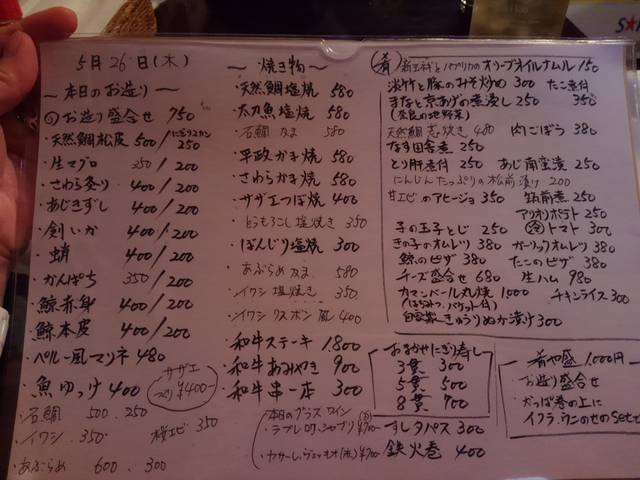 5月26日(木)
〜本日のお造り〜
お造り盛合せ 750
・天然鯛松皮 500/にぎり2カン250
・生マグロ 350/200
・さわら炙り 400/200
・あじきずし 400/200
・剣いか 400/200
・蛸 400/200
・かんぱち 350/200
・鯨赤身 400/200
・鯨本皮 400/200
・ペルー風マリネ 480
・魚ゆっけ 400
サザエ
つくり ¥400-
・石鯛 500. 250
・イワシ. 350
桜エビ 350
・あぶらめ 600. 300
〜焼き物〜
・天然鯛塩焼 580
・太刀魚塩焼 580
・石鯛 〃 580
・平政かま焼 580
・さわらかま焼 580
・サザエつぼ焼 400
・とうもろこし塩焼き 350
・ぼんじり塩焼 300
・あぶらめ 〃 580
・イワシ 塩焼き 350
・イワシ リスボン風 400
・和牛ステーキ 1.800
・和牛あみやき 900
・和牛串一本 300
・本日のグラスワイン
・ラブレロワ.シャブリ(白) ¥700-
肴 新玉ネギとパプリカのオリーブオイルナムル 150
淡竹と豚のみそ炒め 300 たこ煮付 350
まなと京あげの煮浸し 250
(奈良の地野菜)
天然鯛荒炊き 480 肉ごぼう 380
なす田舎煮 250
とり肝煮付 250 あじ南蛮漬 250
にんじんたっぷりの松前漬け 200
甘エビのアヒージョ 350 筑前煮 250
アリオリポテト 250
子の玉子とじ. 250 冷トマト 300
きの子のオムレツ 380 ガーリックオムレツ 380
鯨のピザ 380 たこのピザ 380
チーズ盛合せ 680 生ハム 980
カマンベール丸焼 1.000 チキンライス 300
(はちみつ、バケット付)
自家製きゅうりぬか漬け 300
おまかせにぎり寿し
3貫 300
5貫 500
8貫 700
オレタパス 300
鉄火巻 400
肴や盛 1,000円
・お造り盛合せ
・かっぱ巻の上に
イクラ、ウニのせのset